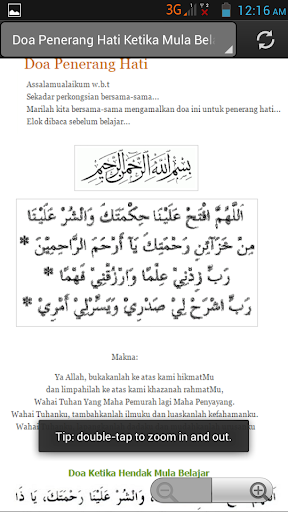 3G
12:16 AM
Doa Penerang Hati Ketika Mula Bela
Doa Penerang Hati
Assalamualaikum w.b.t
Sekadar perkongsian bersama-sama...
Marilah kita bersama-sama mengamalkan doa ini untuk penerang hati...
Elok dibaca sebelum belajar...
بِسْمِ اللَّهِ الرَّحْمَنِ الرَّحِيمِ
اَللَّهُمَّ افْتَحْ عَلَيْنَا حِكْمَتَكَ وَانْشُرْ عَلَيْنَا
مِنْ خَزَآئِنِ رَحْمَتِكَ يَآ أَرْحَمَ الرَّاحِمِيْنَ *
رَبِّ زِدْنِيْ عِلْمًا وَارْزُقْنِيْ فَهْمًا *
رَبِّ اشْرَحْ لِيْ صَدْرِيْ وَيَسِّرْلِيْ أَمْرِيْ *
Makna:
Ya Allah, bukakanlah ke atas kami hikmatMu
dan limpahilah ke atas kami khazanah rahmatMu,
Wahai Tuhan Yang Maha Pemurah lagi Maha Penyayang.
Wahai Tuhanku, tambahkanlah ilmuku dan luaskanlah kefahamanku.
Tip: double-tap to zoom in and out.
Doa Ketika Hendak Mula Belajar
وَانْشُرْ عَلَيْنَا رَحْمَتَكَ، يَا ذَا